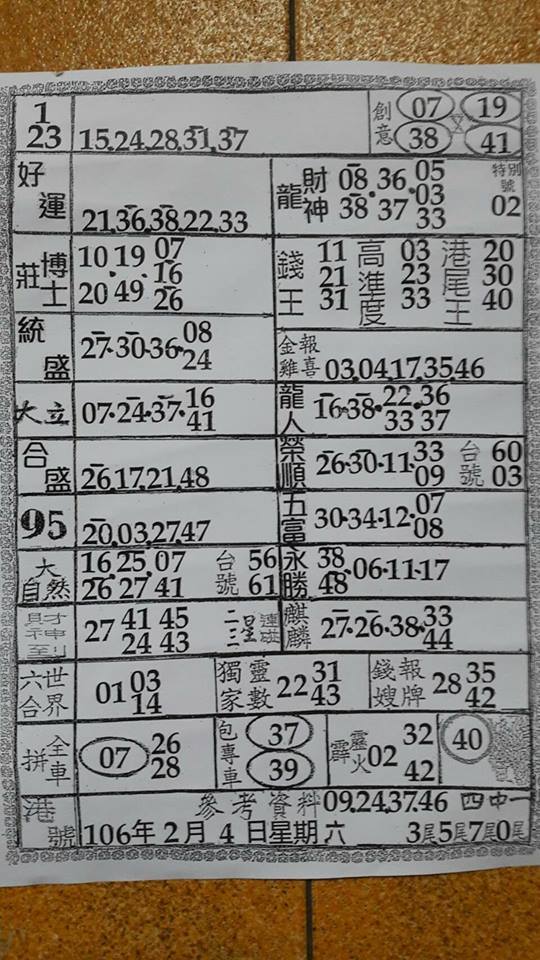 1 23 15,24,28,31,37 創意 07 19 38 41
好運 21,36,38,22,33 龍 財神 08.36.05 03 38 37 33 特別號 02
莊博士 10 19 07 16 20 49 26 錢王 11 21 31 高進度 03 23 33 港尾王 20 30 40
統盛 27.30.36.08 24 金雞報喜 03,04,17,35,46
大立 07.24.37.16 41 龍人 16.38.22.36 33 37
合盛 26,17,21,48 榮順 26.30.11.33 09 台號 60 03
95 20,03,27,47 五富 30.34.12.07 08
大自然 16 25 07 26 27 41 台號 56 61 永勝 38 48.06.11.17
財神到 27 41 45 24 43 二三星連碰 麒麟 27.26.38.33 44
六合世界 01 03 14 獨家靈數 22 31 43 錢嫂報牌 28 35 42
全車拼 07 26 28 包專車 37 39 霹靂火 02 32 42 40
港號 參考資料 09,24,37,46 四中一
106年2月4日星期六 3尾5尾7尾0尾